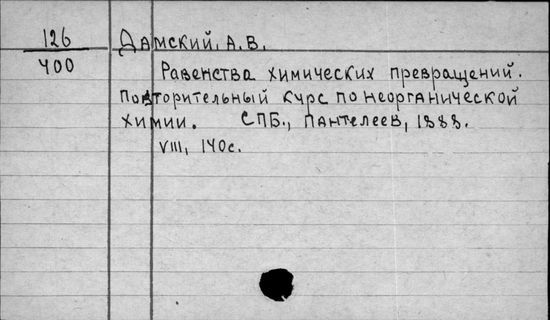 126
400
Дамский, А. В.
Равенства химических превращений.
Повторительный курс по неорганической
химии. СПБ., Пантелеев, 1888.
VIII, 140 с.